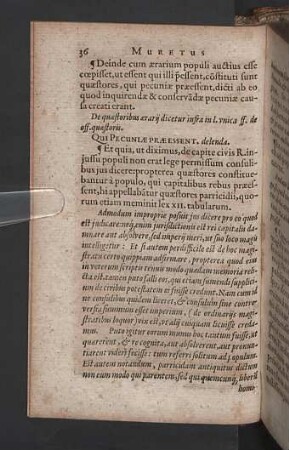 36 MURETUS
¶ Deinde cum ærarium populi auctius esse
cœpisset, ut essent qui illi pręessent, cōstituti sunt
quæstores, qui pecuniæ præessent, dicti ab eo
quod inquirendæ & conservādæ pecuniæ cau
sa creati erant.
De quæstoribus ærarij dicetur infra in l. unica ff. de
off. quæstoris.
QUI PECUNIÆ PRÆESSENT. delenda.
¶ Et quia, ut diximus, de capite civis R. in-
jussu populi non erat lege permissum consuli-
bus jus dicere: propterea quæstores constitue-
bantur à populo, qui capitalibus rebus præes-
sent, hi appellabātur quæstores parricidij, quo-
rum etiam meminit lex XII. tabularum.
Admodum impropriè posuit jus dicere pro eo quod
est judicare: neq; enim jurisdictionis est rei capitalis da-
mnare aut absolvere, sed imperij meri, ut suo loco magis
intelligetur: Et si autem perdifficile est de hoc magi-
stratu certi quippiam adfirmare, propterea quod eius in
veterum scriptis tenuis modo quædam memoria
tamen
de civibus potestatem ei fuisse credunt. Nam cum id
ne consulibus quidem liceret, & consulum sine contro-
versia summum esset imperium,
magistratibus
mum. Puto igitur eorum munus hoc tantum fuisse, ut
quærerent, & re cognita, aut absolverent, aut pronun-
tiarent videri fecisse: tum referri solitum ad populum.
Est autem notandum, particidam antiquitus dictum
non eum modo qui parentem, sed qui quemcunq; liberū
homi-